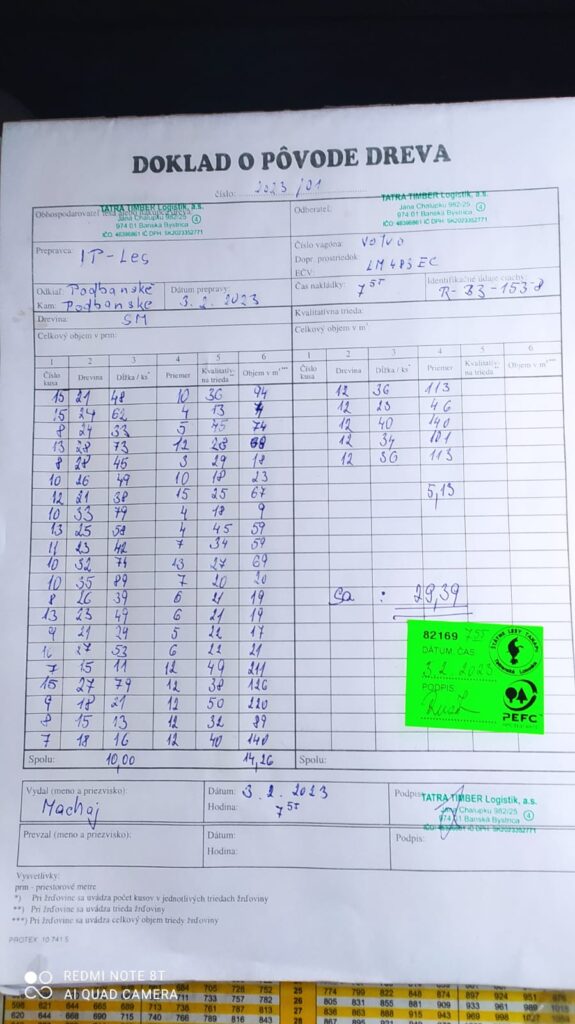 DOKLAD O PÔVODE DREVA
číslo: 2023/01
TATRA TIMBER Logistik, a.s.
Jana Chalupku 982/25
974 01 Banská Bystrica
IČO: 48396861 IČ DPH: SK2023352771
4
Odberateľ:
TATRA TIMBER Logistik, a.s.
Jana Chalupku 982/25
974 01 Banská Bystrica
IČO: 48396861 IČ DPH: SK2023352771
4
Prepravca: IP-Les
Číslo vagóna: Volvo
Dopr. prostriedok:
EČV: LM483EC
Odkiaľ: Podbanské
Kam: Podbanské
Dátum prepravy: 3.2.2023
Čas nakládky: 7 55
Identifikačné údaje ciachy: R-B3-153-8
Drevina: SM
Kvalitatívna trieda:
Celkový objem v prm:
Celkový objem v m³
1 2 3 4 5 6 1 2 3 4 5 6
Číslo kusa Drevina Dĺžka / ks* Priemer Kvalitatív-na trieda** Objem v m³*** Číslo kusa Drevina Dĺžka / ks* Priemer Kvalitatív-na trieda** Objem v m³***
15 21 48 10 36 94 12 36 113
15 24 62 4 13 12 23 46
8 24 33 5 45 74 12 40 140
13 28 73 12 28 12 34 101
8 28 45 3 29 18 12 36 113
10 26 49 10 18 23
12 21 38 15 25 67 5,13
10 33 79 4 18 9
13 25 58 4 45 59
11 23 42 7 34 59
10 32 74 13 27 69
10 35 89 7 20 20
8 26 39 6 21 19 Sa : 29,39
13 23 49 6 21 19
9 21 24 5 22 17
16 27 53 6 22 21
7 15 11 12 49 211
15 27 79 12 38 126
9 18 21 12 50 220
8 15 13 12 32 89
7 18 16 12 40 140
Spolu: 10,00 14,26 Spolu:
82169 755
DÁTUM, ČAS
3.2.2023
PODPIS
ŠTÁTNE LESY TANAPu
PEFC
Vydal (meno a priezvisko):
Machaj
Dátum: 3.2.2023
Hodina: 7 55
Podpis:
TATRA TIMBER Logistik, a.s.
Jana Chalupku 982/25
974 01 Banská Bystrica
IČO: 48396861 IČ DPH: SK2023352771
4
Prevzal (meno a priezvisko):
Dátum:
Hodina:
Podpis:
Vysvetlivky:
prm - priestorové metre
*) Pri žrďovine sa uvádza počet kusov v jednotlivých triedach žrďoviny
**) Pri žrďovine sa uvádza trieda žrďoviny
***) Pri žrďovine sa uvádza celkový objem triedy žrďoviny
PROTEX 10 741 5
REDMI NOTE 8T
AI QUAD CAMERA